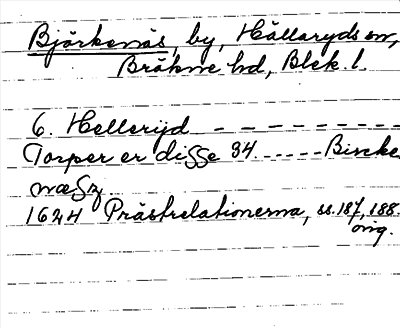 Björkenäs, by, Hällaryds sn,
Bräkne hd, Blek. l.
6. Hellerijd - - - - - - - - -
Torper er disse 34. - - - - - Bircke
næsz
1624 Prästrelationerna, ss. 187, 188.
orig.